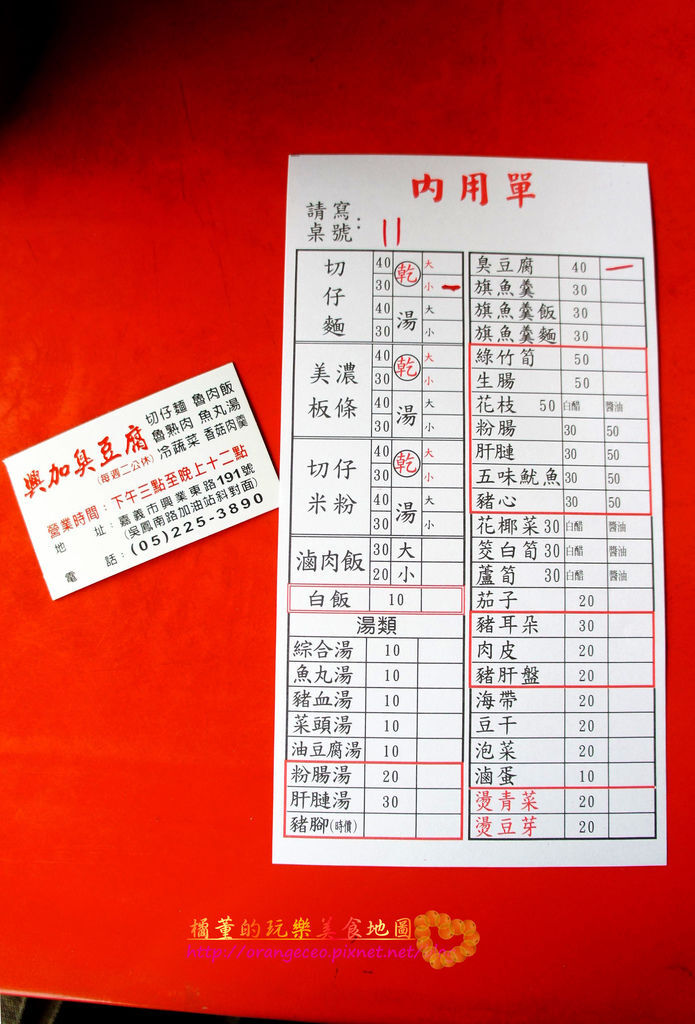 內用單
請寫
桌號： 11
切仔麵 40 乾 大
30 小 一
40 湯 大
30 小
美濃板條 40 乾 大
30 小
40 湯 大
30 小
切仔米粉 40 乾 大
30 小
40 湯 大
30 小
滷肉飯 30 大
20 小
白飯 10
湯類
綜合湯 10
魚丸湯 10
豬血湯 10
菜頭湯 10
油豆腐湯 10
粉腸湯 20
肝腱湯 30
豬腳(時價)
臭豆腐 40 一
旗魚羹 30
旗魚羹飯 30
旗魚羹麵 30
綠竹筍 50
生腸 50
花枝 50 白醋 醬油
粉腸 30 50
肝腱 30 50
五味魷魚 30 50
豬心 30 50
花椰菜 30 白醋 醬油
筊白筍 30 白醋 醬油
蘆筍 30 白醋 醬油
茄子 20
豬耳朵 30
肉皮 20
豬肝盤 20
海帶 20
豆干 20
泡菜 20
滷蛋 10
燙青菜 20
燙豆芽 20
興加臭豆腐
(每週二公休)
切仔麵 魯肉飯
魯熟肉 魚丸湯
冷蔬菜 香菇肉羹
營業時間：下午三點至晚上十二點
地 址：嘉義市興業東路191號
(吳鳳南路加油站斜對面)
電 話：(05)225-3890
橘董的玩樂美食地圖
http://orangeceo.pixnet.net/